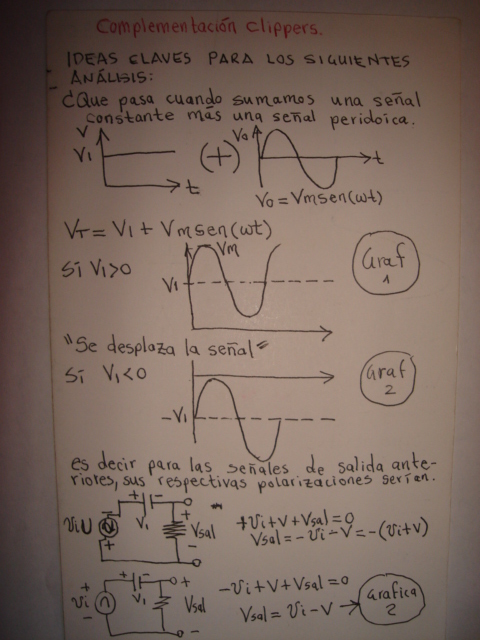 Complementación Clippers.
IDEAS CLAVES PARA LOS SIGUIENTES
ANÁLISIS:
¿Que pasa cuando sumamos una señal
constante más una señal peridoica.
V
V1
t
(+)
Vo
t
Vo = Vmsen(wt)
VT = V1 + Vmsen(wt)
Si V1>0
Vm
V1
Graf
1
"Se desplaza la señal"
Si V1<0
-V1
Graf
2
es decir para las señales de salida ante-
riores, sus respectivas polarizaciones serían.
+ -
V1
+
Vsal
-
+
+Vi+V+Vsal=0
Vsal=-Vi-V=-(Vi+V)
+ -
V1
+
Vi
-
+
Vsal
-
-Vi+V+Vsal=0
Vsal=Vi-V→
Grafica
2